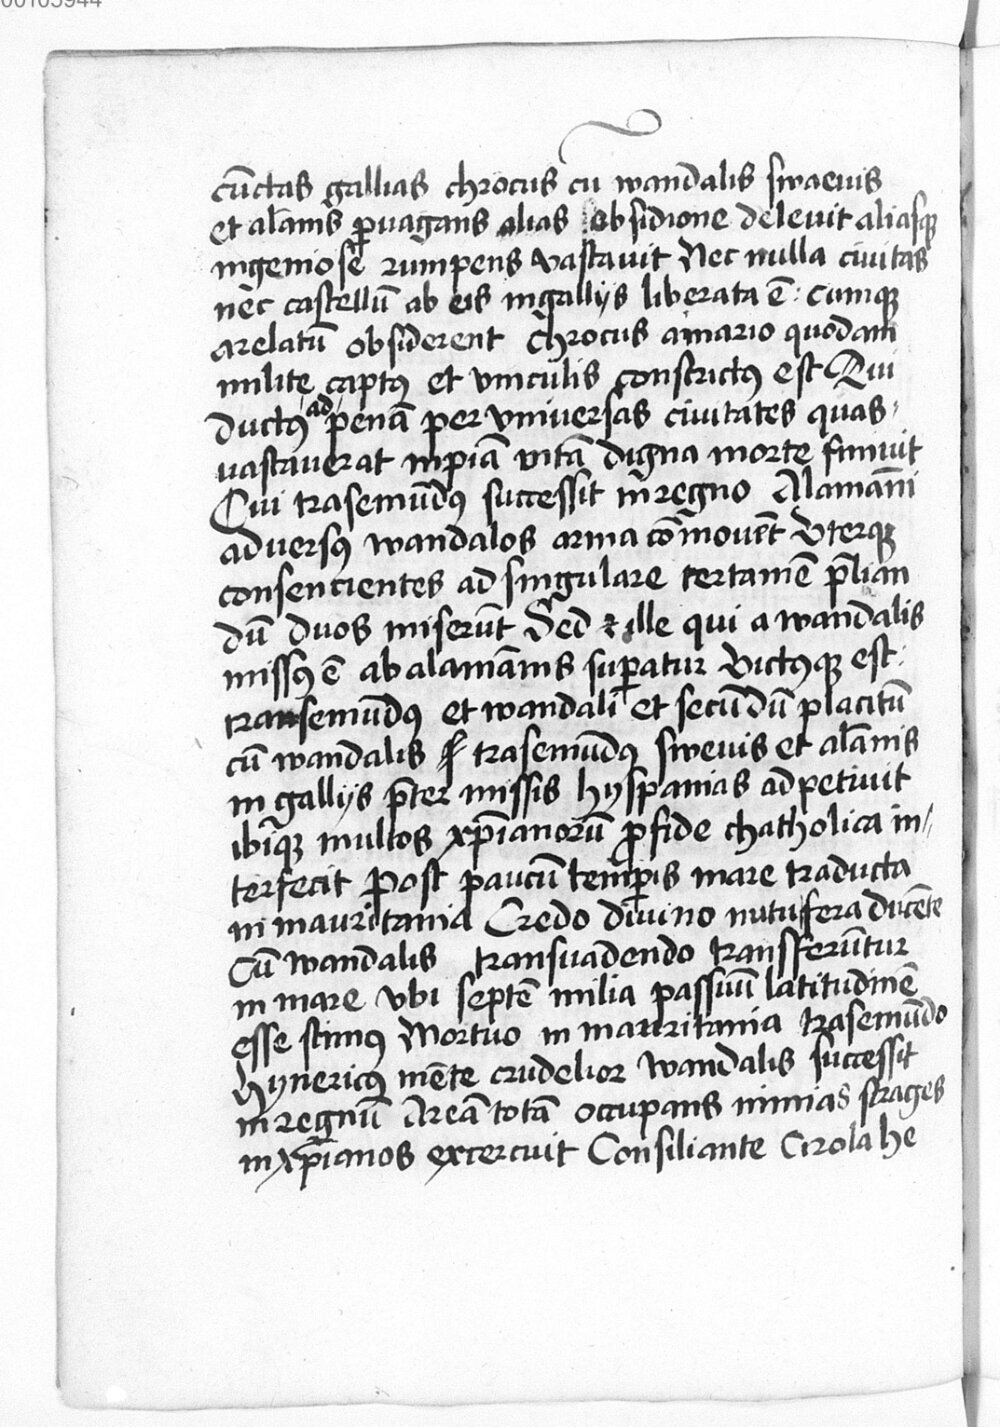 00105944
cūctas gallias chrocus cū wandalis swaeuis
et alāanis ꝑuagans alias obsidione deleuit aliasqꝫ
ingeniose rumpens vastauit Nec nulla ciuitas
nec castellū ab eis in gallijs liberata ē : cumqꝫ
arelatū obsiderent chrocus a mario quodam
milite captꝰ et vinculis constrictꝰ est Qui
ductꝰ ad penā per vniuersas ciuitates quas
vastauerat inpiā vitā digna morte finiuit
Cui trasemūdꝰ successit in regno Alamāni
aduersꝰ wandalos arma cōmouēt Vterqꝫ
consencientes ad singulare certamē p̄lian
dū duos miserūt Sed et ille qui a wandalis
missꝰ ē ab alamānis suꝑatur Victꝰqꝫ est
transemūdꝰ et wandali et secūdū placitū
cū wandalis trasemūdꝰ sweuis et alāanis
in gallijs p̄termissis hyspanias adpetiuit
ibiqꝫ multos xp̄ianorū ꝓ fide chatholica in
terfecit Post paucū temꝑis mare traducta
in mauritania Credo diuino nutu fera ducēte
Cū wandalis transuadendo transferūtur
in mare vbi septē milia passuū latitudinē
esse scimꝰ Mortuo in mauritania trasemūdo
hynericꝰ mēte crudelior wandalis successit
in regnū Areā totā occupans nimias strages
in xp̄ianos excercuit Consiliante Cirola he